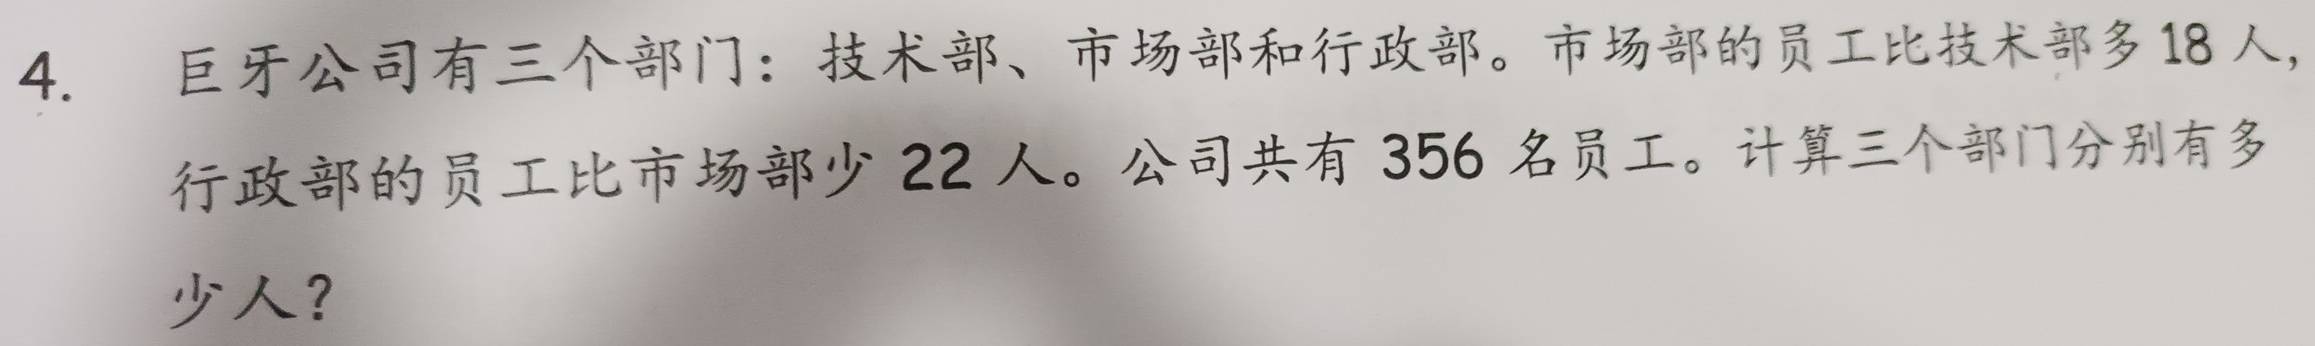 4. 巨牙公司有三个部门：技术部、市场部和行政部。市场部的员工比技术部多 18 人，
行政部的员工比市场部少 22 人。公司共有 356 名员工。计算三个部门分别有多
少人？